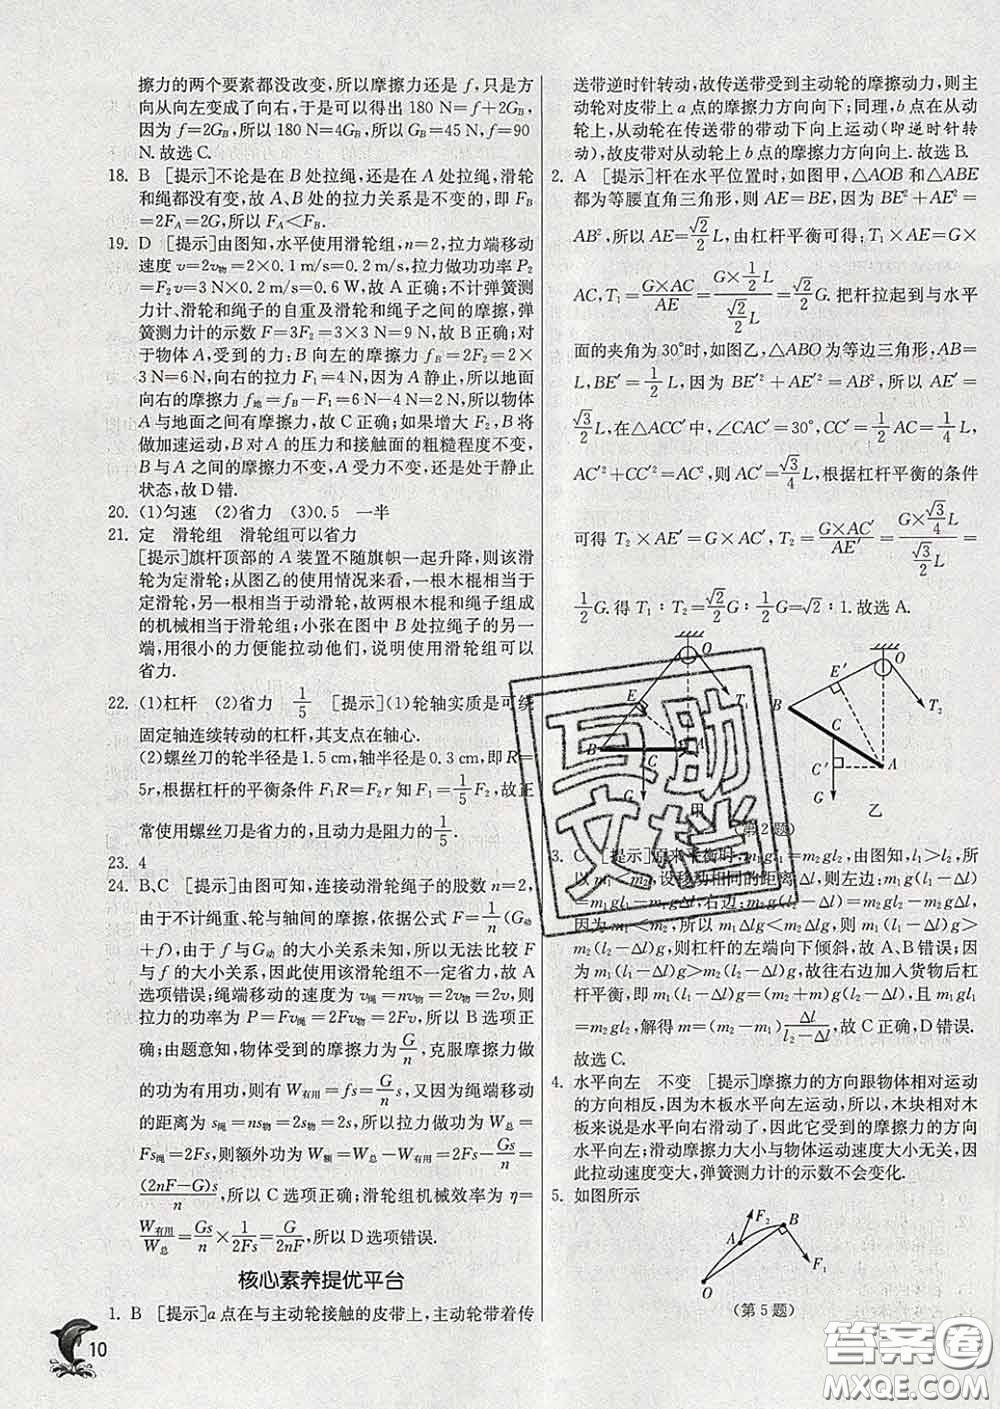 擦力的两个要素都没改变,所以摩擦力还是 f,只是方
向从向左变成了向右,于是可以得出 180 N=f+2G_B,
因为 f=2G_B,所以 180 N=4G_B,所以 G_B=45 N,f=90
N.故选C.
18. B [提示]不论是在 B 处拉绳,还是在 A 处拉绳,滑轮
和绳都没有变,故 A、B 处的拉力关系是不变的,即 F_B
=2F_A=2G,所以 F_A<F_B.
19. D [提示]由图知,水平使用滑轮组,n=2,拉力端移动
速度 v=2v物=2×0.1 m/s=0.2 m/s,拉力做功功率 P₂
=F₂v=3 N×0.2 m/s=0.6 W,故 A 正确;不计弹簧测
力计、滑轮和绳子的自重及滑轮和绳子之间的摩擦,弹
簧测力计的示数 F=3F₂=3×3 N=9 N,故 B 正确;对
于物体 A,受到的力:B 向左的摩擦力 f_B=2F₂=2×
3 N=6 N,向右的拉力 F₁=4 N,因为 A 静止,所以地面
向右的摩擦力 f地=f_B-F₁=6 N-4 N=2 N,所以物体
A 与地面之间有摩擦力,故 C 正确;如果增大 F₂,B 将
做加速运动,B 对 A 的压力和接触面的粗糙程度不变,
B 与 A 之间的摩擦力不变,A 受力不变,还是处于静止
状态,故 D 错.
20. (1)匀速 (2)省力 (3)0.5 一半
21. 定 滑轮组 滑轮组可以省力
[提示]旗杆顶部的 A 装置不随旗帜一起升降,则该滑
轮为定滑轮;从图乙的使用情况来看,一根木棍相当于定
滑轮,另一根相当于动滑轮,故两根木棍和绳子组成
的机械相当于滑轮组;小张在图中 B 处拉绳子的另一
端,用很小的力便能拉动他们,说明使用滑轮组可以
省力.
22. (1)杠杆 (2)省力 1/5 [提示](1)轮轴实质是可绕
固定轴连续转动的杠杆,其支点在轴心.
(2)螺丝刀的轮半径是 1.5 cm,轴半径是 0.3 cm,即 R=
5r,根据杠杆的平衡条件 F₁R=F₂r 知 F₁=1/5F₂,故正
常使用螺丝刀是省力的,且动力是阻力的1/5.
23. 4
24. B、C [提示]由图可知,连接动滑轮绳子的股数 n=2,
由于不计绳重、轮与轴间的摩擦,依据公式 F=1/n(G动
+f),由于 f 与G动 的大小关系未知,所以无法比较 F
与 f 的大小关系,因此使用该滑轮组不一定省力,故 A
选项错误;绳端移动的速度为 v绳=nv物=2v物=2v,则
拉力的功率为 P=Fv绳=2Fv物=2Fv,所以 B 选项正
确;由题意知,物体受到的摩擦力为G/n,克服摩擦力做
的功为有用功,则有 W有用=fs=G/n s,又因为绳端移动
的距离为 s绳=ns物=2s物=2s,所以拉力做功为 W总=
Fs绳=2Fs,则额外功为 W额=W总-W有用=2Fs-Gs/n=
(2nF-G)s/n,所以 C 选项正确;滑轮组机械效率为 η=
W有用/W总=Gs/n×1/2Fs=G/2nF,所以 D 选项错误.
核心素养提优平台
1. B [提示]a 点在与主动轮接触的皮带上,主动轮带着传
10
送带逆时针转动,故传送带受到主动轮的摩擦动力,则主
动轮对皮带上 a 点的摩擦力方向向下;同理,b 点在从动
轮上,从动轮在传送带的带动下向上运动(即逆时针转
动),故皮带对从动轮上 b 点的摩擦力方向向上.故选 B.
2. A [提示]杆在水平位置时,如图甲,△AOB 和△ABE
都为等腰直角三角形,则 AE=BE,因为 BE²+AE²=
AB²,所以 AE=√2/2 L,由杠杆平衡可得:T₁×AE=G×
AC,T₁=G×AC/AE=(G×1/2 L)/(√2/2 L)=√2/2 G.把杆拉起到与水平
面的夹角为 30°时,如图乙,△ABO 为等边三角形,AB=
L,BE′=1/2 L,因为 BE′²+AE′²=AB²,所以 AE′=
√3/2 L,在△ACC′中,∠CAC′=30°,CC′=1/2 AC=1/4 L,
AC′²+CC′²=AC²,则 AC′=√3/4 L,根据杠杆平衡的条件
可得 T₂×AE′=G×AC′,T₂=G×AC′/AE′=(G×√3/4 L)/(√3/2 L)=
1/2 G.得 T₁∶T₂=√2/2 G∶1/2 G=√2∶1.故选 A.
O E T₁ B A C G 甲
O E′ T₂ B C C′ A G 乙
(第2题)
3. C [提示]原来平衡时,m₁gl₁=m₂gl₂,由图知,l₁>l₂,所
以 m₁<m₂,设移动相同的距离 Δl,则左边:m₁g(l₁-Δl)
=m₁gl₁-m₁gΔl;右边:m₂g(l₂-Δl)=m₂gl₂-m₂gΔl,
因为 m₁<m₂,所以 m₁Δlg<m₂Δlg,所以,则 m₁(l₁-Δl)g>
m₂(l₂-Δl)g,则杠杆的左端向下倾斜,故 A、B 错误;因
为 m₁(l₁-Δl)g>m₂(l₂-Δl)g,故往右边加入货物后杠
杆平衡,即 m₁(l₁-Δl)g=(m₂+m)g(l₂-Δl),且 m₁gl₁
=m₂gl₂,解得 m=(m₂-m₁)Δl/(l₂-Δl),故 C 正确,D 错误.
故选 C.
4. 水平向左 不变 [提示]摩擦力的方向跟物体相对运动
的方向相反,因为木板水平向左运动,所以,木块相对木
板来说是水平向右滑动了,因此它受到的摩擦力的方向
水平向左;滑动摩擦力大小与物体运动速度大小无关,因
此拉动速度变大,弹簧测力计的示数不会变化.
5. 如图所示
F₂ B A F₁ O
(第5题)
互助
文档
答案圈
MXQE.COM